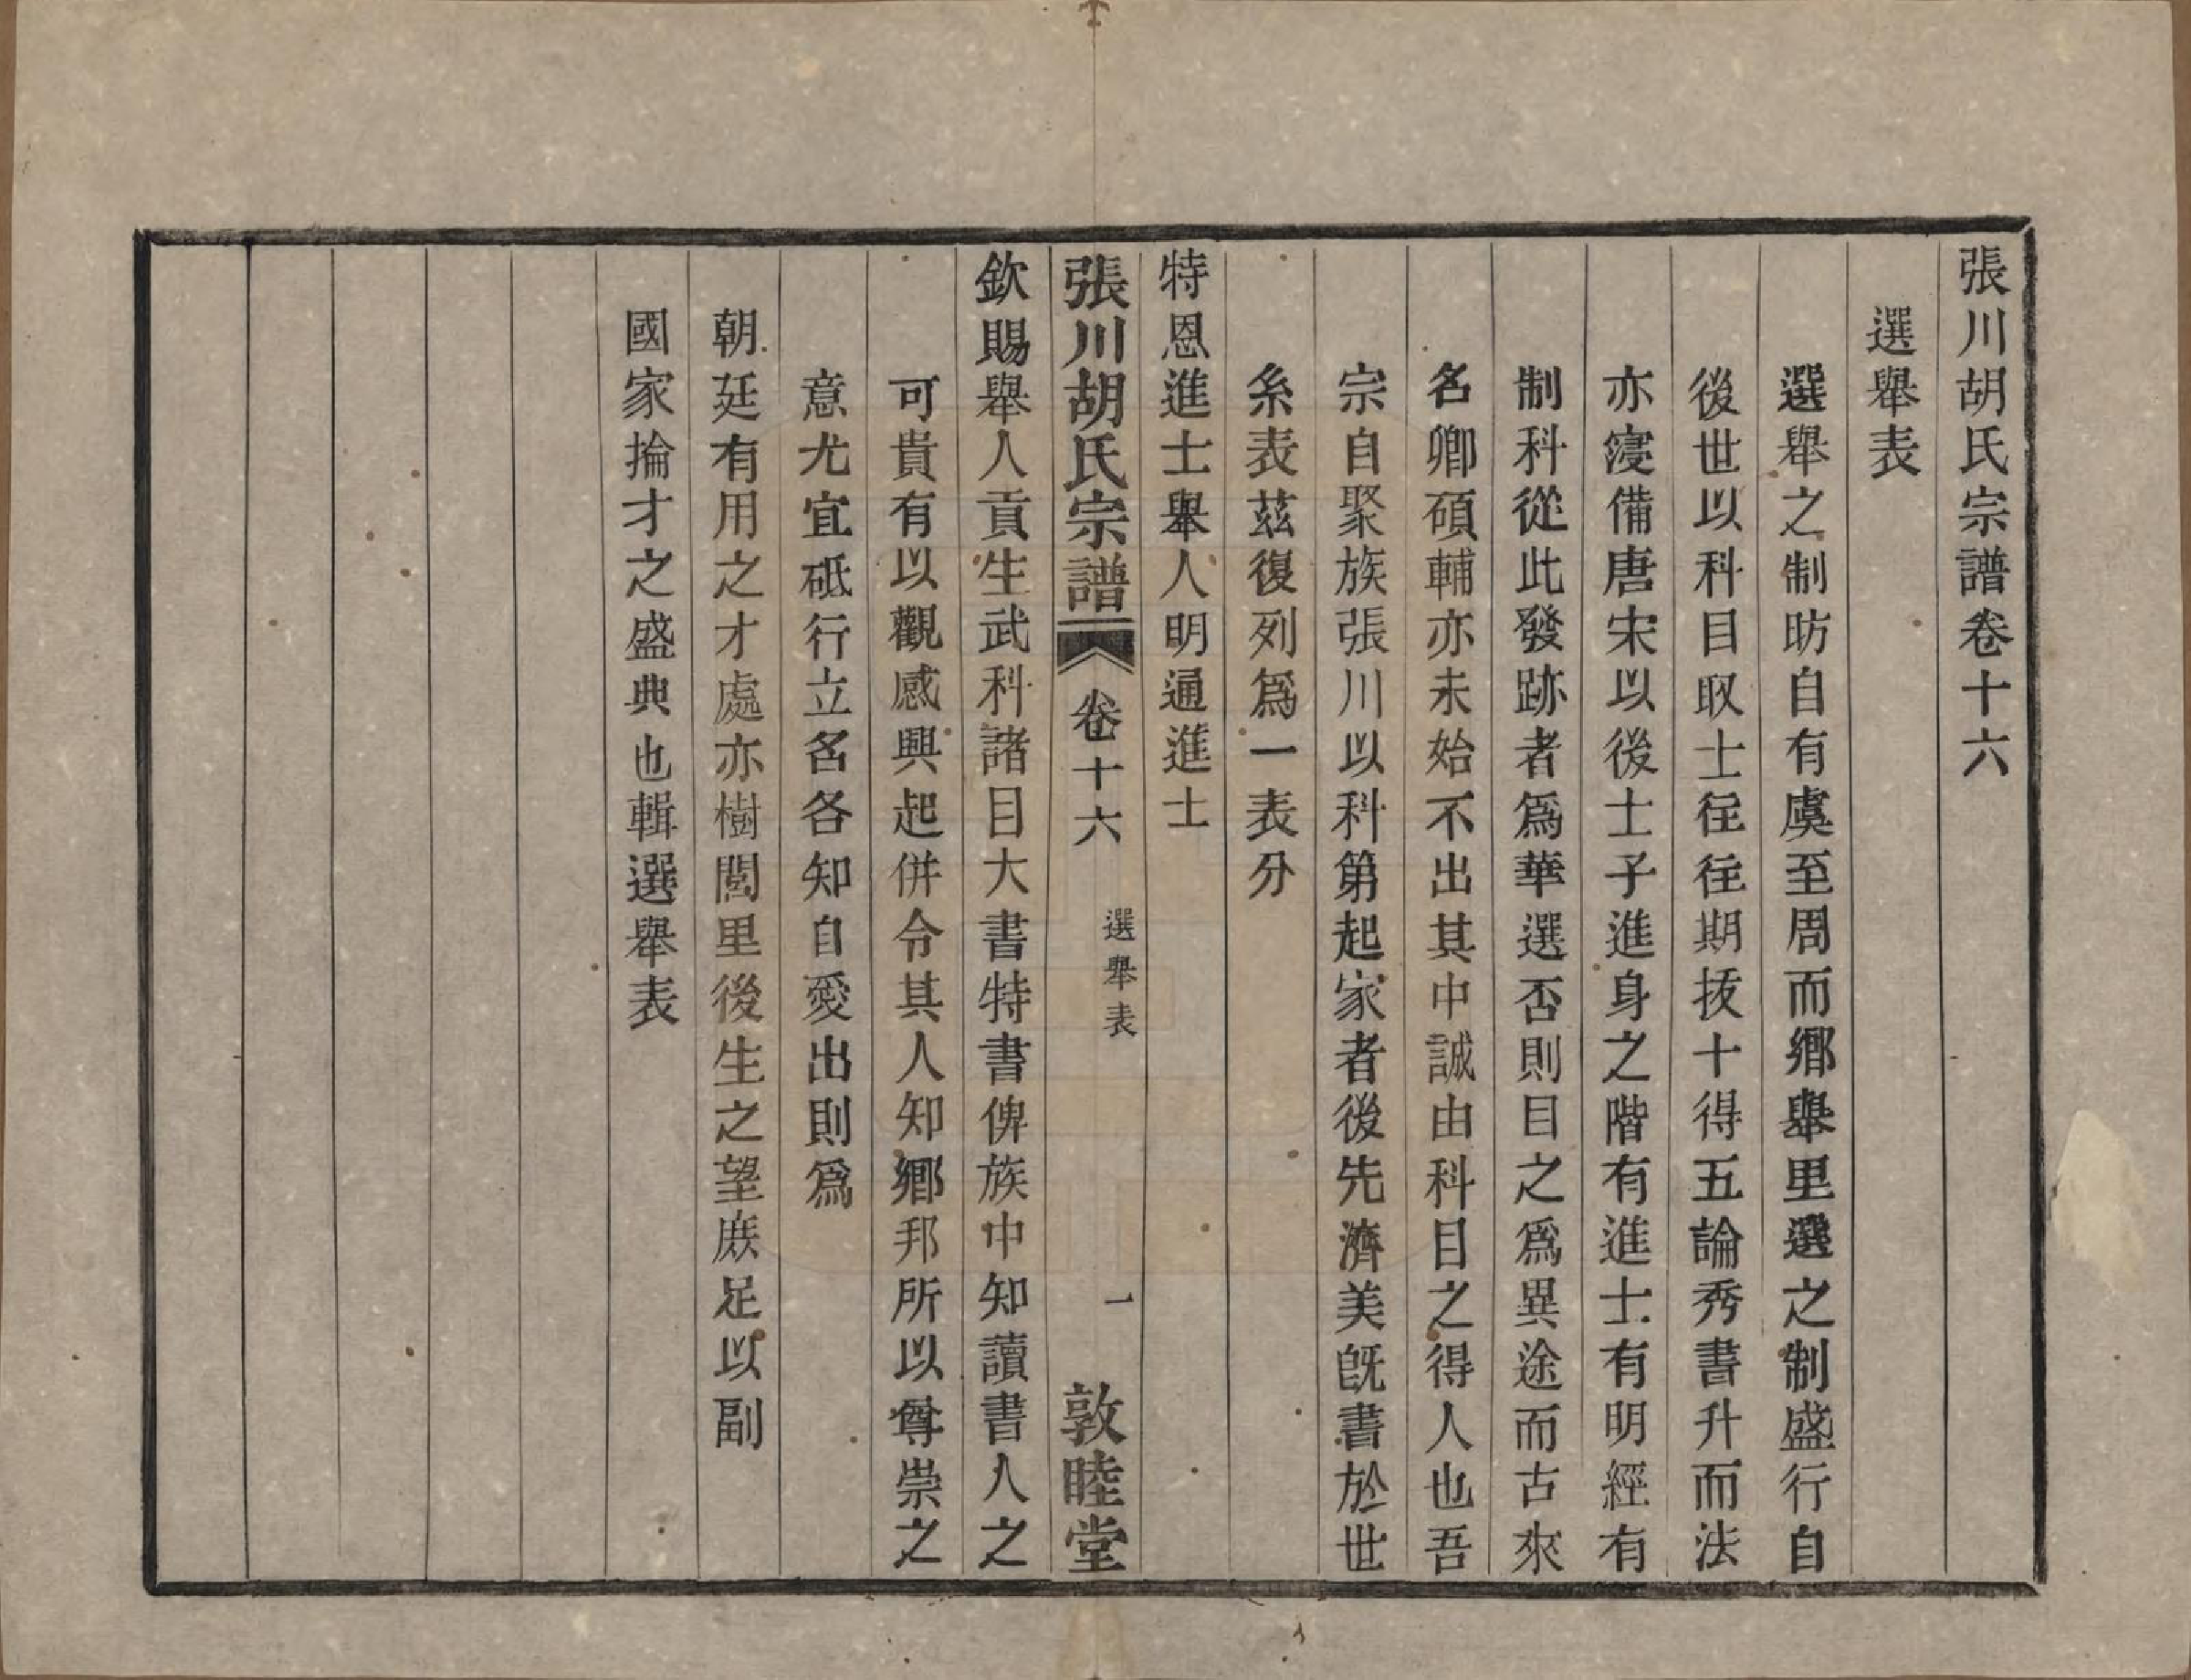 張川胡氏宗譜卷十六
選舉表
選舉之制昉自有虞至周而鄉舉里選之制盛行自
後世以科目取士往往期拔十得五論秀書升而法
亦寖備唐宋以後士子進身之階有進士有明經有
制科從此發跡者爲華選否則目之爲異途而古來
名卿碩輔亦未始不出其中誠由科目之得人也吾
宗自聚族張川以科第起家者後先濟美旣書於世
系表茲復列爲一表分
特恩進士舉人明通進士
張川胡氏宗譜 卷十六 選舉表 一 敦睦堂
欽賜舉人貢生武科諸目大書特書俾族中知讀書人之
可貴有以觀感興起併令其人知鄉邦所以尊崇之
意尤宜砥行立名各知自愛出則爲
朝廷有用之才處亦樹閭里後生之望庶足以副
國家掄才之盛典也輯選舉表